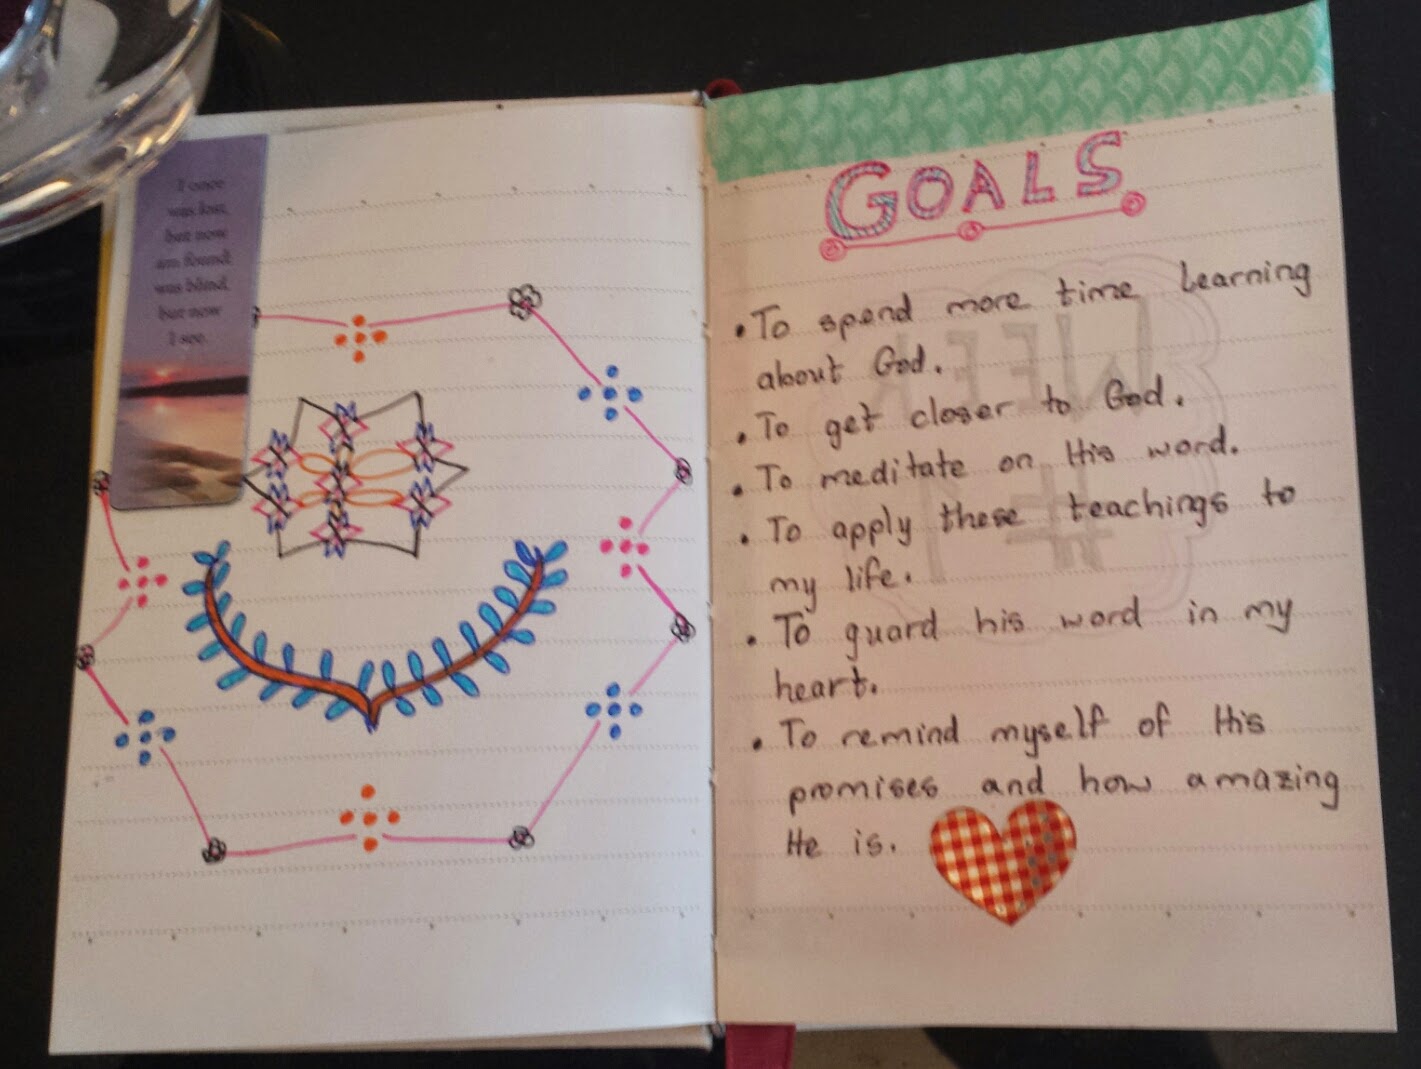 I once
was lost,
but now
am found,
was blind,
but now
I see.
GOALS
• To spend more time learning
about God.
• To get closer to God.
• To meditate on His word.
• To apply these teachings to
my life.
• To guard his word in my
heart.
• To remind myself of His
promises and how amazing
He is.
WEEK
#1